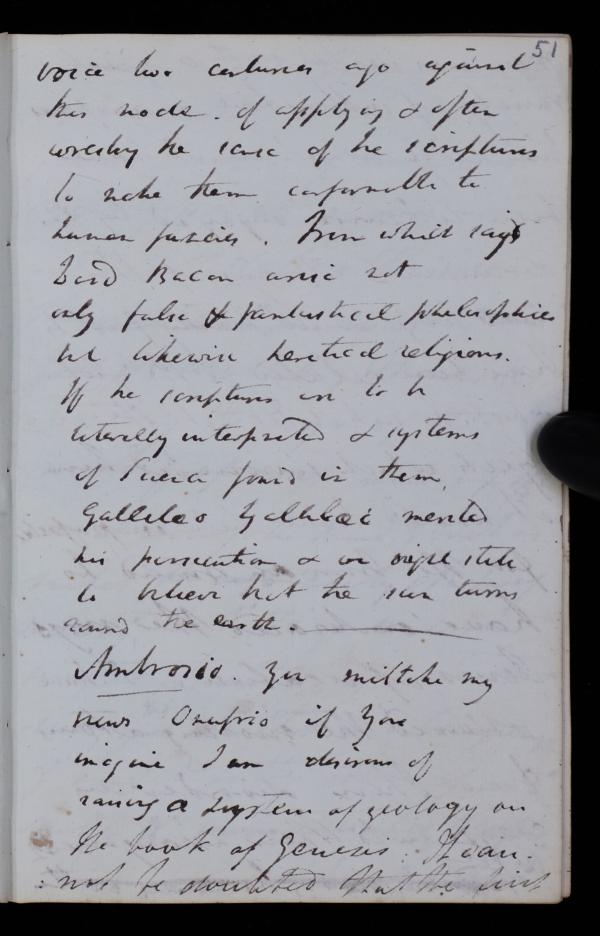 51
voice two centuries ago against
this mode of applying & often
wresting the sense of the scriptures
to make them conformable to
human fancies. From which says
Lord Bacon arise not
only false & fantastical philosophies
but likewise heretical religions.
If the scriptures are to be
literally interpreted & systems
of Science found in them,
Gallileo Gallilaei merited
his persecution & we ought still
to believe that the sun turns
round the earth.
Ambrosio. You mistake my
views Onuphrio if you
imagine I am desirous of
raising a system of geology on
the book of Genesis. It can-
not be doubted that the first